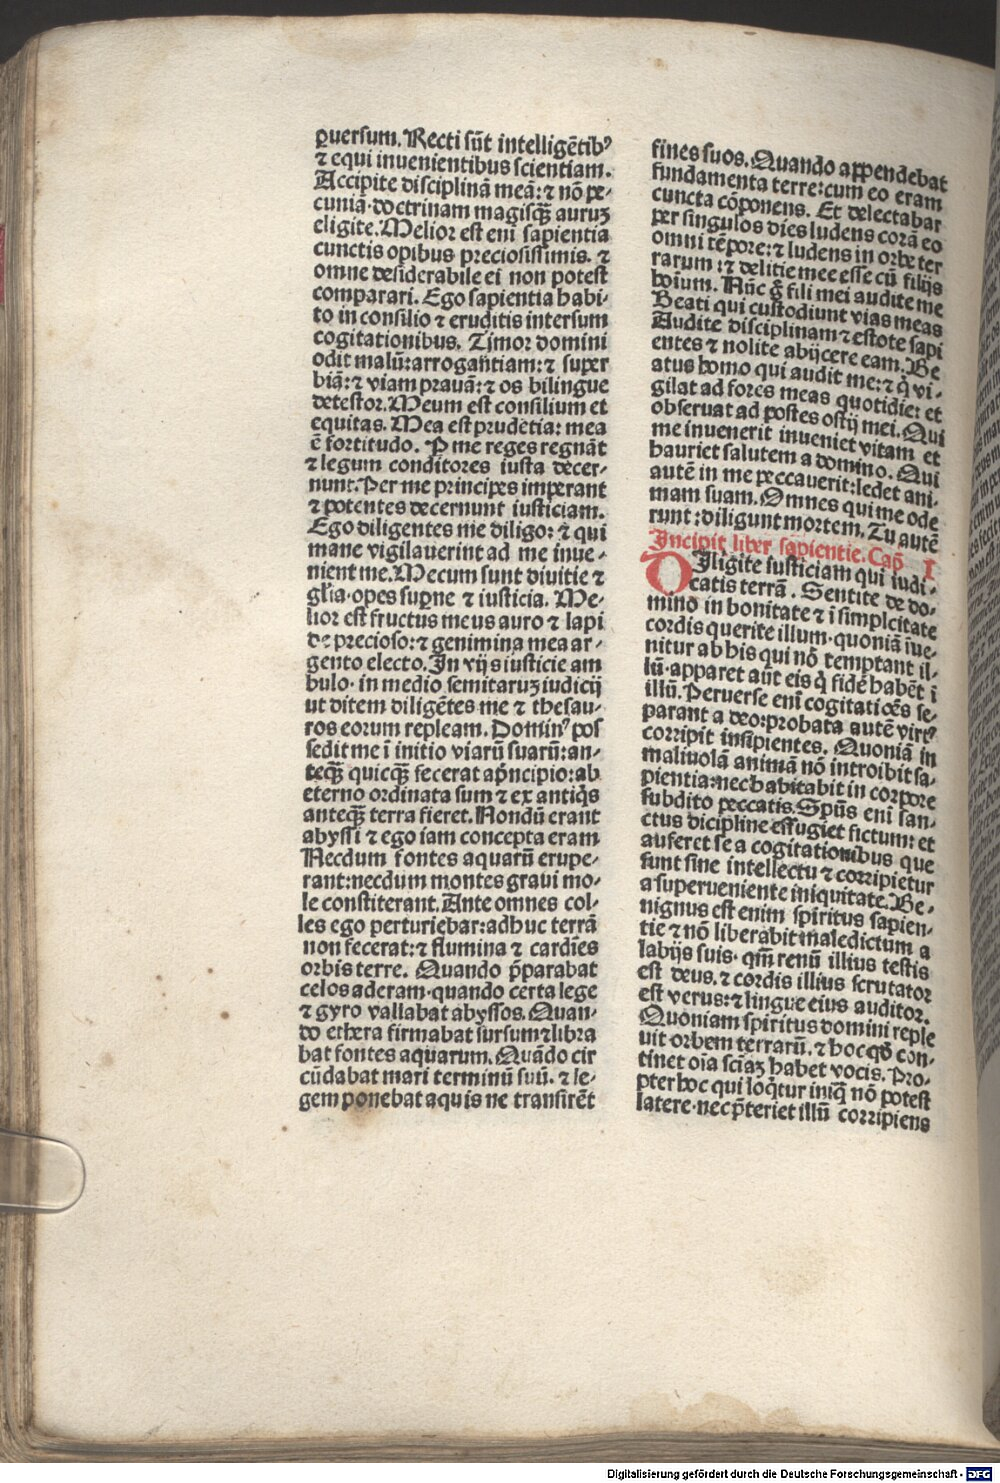 ꝑuersum. Recti sūt intelligētibꝰ
⁊ equi inuenientibus scientiam.
Accipite disciplinā meā: ⁊ nō pe-
cuniā· doctrinam magisqꝫ auruꝫ
eligite. Melior est eni sapientia
cunctis opibus preciosissimis. ⁊
omne desiderabile ei non potest
comparari. Ego sapientia habi-
to in consilio ⁊ eruditis intersum
cogitationibus. Timor domini
odit malū: arrogantiam: ⁊ super
biā: ⁊ viam prauā: ⁊ os bilingue
detestor. Meum est consilium et
equitas. Mea est prudētia: mea
ē fortitudo. P me reges regnāt
⁊ legum conditores iusta decer-
nunt. Per me principes imperant
⁊ potentes decernunt iusticiam.
Ego diligentes me diligo: ⁊ qui
mane vigilauerint ad me inue-
nient me. Mecum sunt diuitie ⁊
gl̄ia· opes suꝑne ⁊ iusticia. Me-
lior est fructus meus auro ⁊ lapi
de precioso: ⁊ genimina mea ar-
gento electo. In vijs iusticie am
bulo· in medio semitaruꝫ iudicij
ut ditem diligētes me ⁊ thesau-
ros eorum repleam. Dominꝰ pos
sedit me ī initio viarū suarū: an-
teqꝫ quicqꝫ fecerat ap̄ncipio: ab
eterno ordinata sum ⁊ ex antiq̄s
anteqꝫ terra fieret. Nondū erant
abyssi ⁊ ego iam concepta eram
Necdum fontes aquarū erupe-
rant: necdum montes graui mo-
le constiterant. Ante omnes col-
les ego perturiebar: adhuc terrā
non fecerat: ⁊ flumina ⁊ cardīes
orbis terre. Quando p̄parabat
celos aderam· quando certa lege
⁊ gyro vallabat abyssos. Quan-
do ethera firmabat sursum ⁊ libra
bat fontes aquarum. Quādo cir
cūdabat mari terminū suū. ⁊ le-
gem ponebat aquis ne transirēt
fines suos. Quando appendebat
fundamenta terre: cum eo eram
cuncta cōponens. Et delectabar
per singulos dies ludens corā eo
omni tēpore: ⁊ ludens in orbe ter
rarum: ⁊ delitie mee esse cū filijs
hoīum. Nūc g̊ fili mei audite me
Beati qui custodiunt vias meas
Audite disciplinam ⁊ estote sapi
entes ⁊ nolite abijcere eam. Be
atus homo qui audit me: ⁊ q̇ vi-
gilat ad fores meas quotidie: et
obseruat ad postes ostij mei. Qui
me inuenerit inueniet vitam et
hauriet salutem a domino. Qui
autē in me peccauerit: ledet ani-
mam suam. Omnes qui me ode
runt: diligunt mortem. Tu autē
Incipit liber sapientie. Cap̄ I
DIligite iusticiam qui iudi-
catis terrā. Sentite de do-
mino in bonitate ⁊ ī simplcitate
cordis querite illum· quoniā īue-
nitur ab his qui nō temptant il-
lū· apparet aūt eis q̇ fidē habēt ī
illū. Peruerse enī cogitatiōes se-
parant a deo: probata autē virtꝰ
corripit insipientes. Quoniā in
maliuolā animā nō introibit sa-
pientia: nec habitabit in corpore
subdito peccatis. Spūs enī san-
ctus dicipline effugiet fictum: et
auferet se a cogitationibus que
sunt sine intellectu ⁊ corripietur
a superueniente iniquitate. Be-
nignus est enim spiritus sapien-
tie ⁊ nō liberabit maledictum a
labijs suis· qm̄ renū illius testis
est deus. ⁊ cordis illius scrutator
est verus: ⁊ lingue eius auditor.
Quoniam spiritus domini reple
uit orbem terrarū. ⁊ hoc qḋ con-
tinet oīa sciāꝫ habet vocis. Pro-
pter hoc qui loq̇tur iniq̄ nō potest
latere· nec p̄teriet illū corripiens
Digitalisierung gefördert durch die Deutsche Forschungsgemeinschaft - DFG